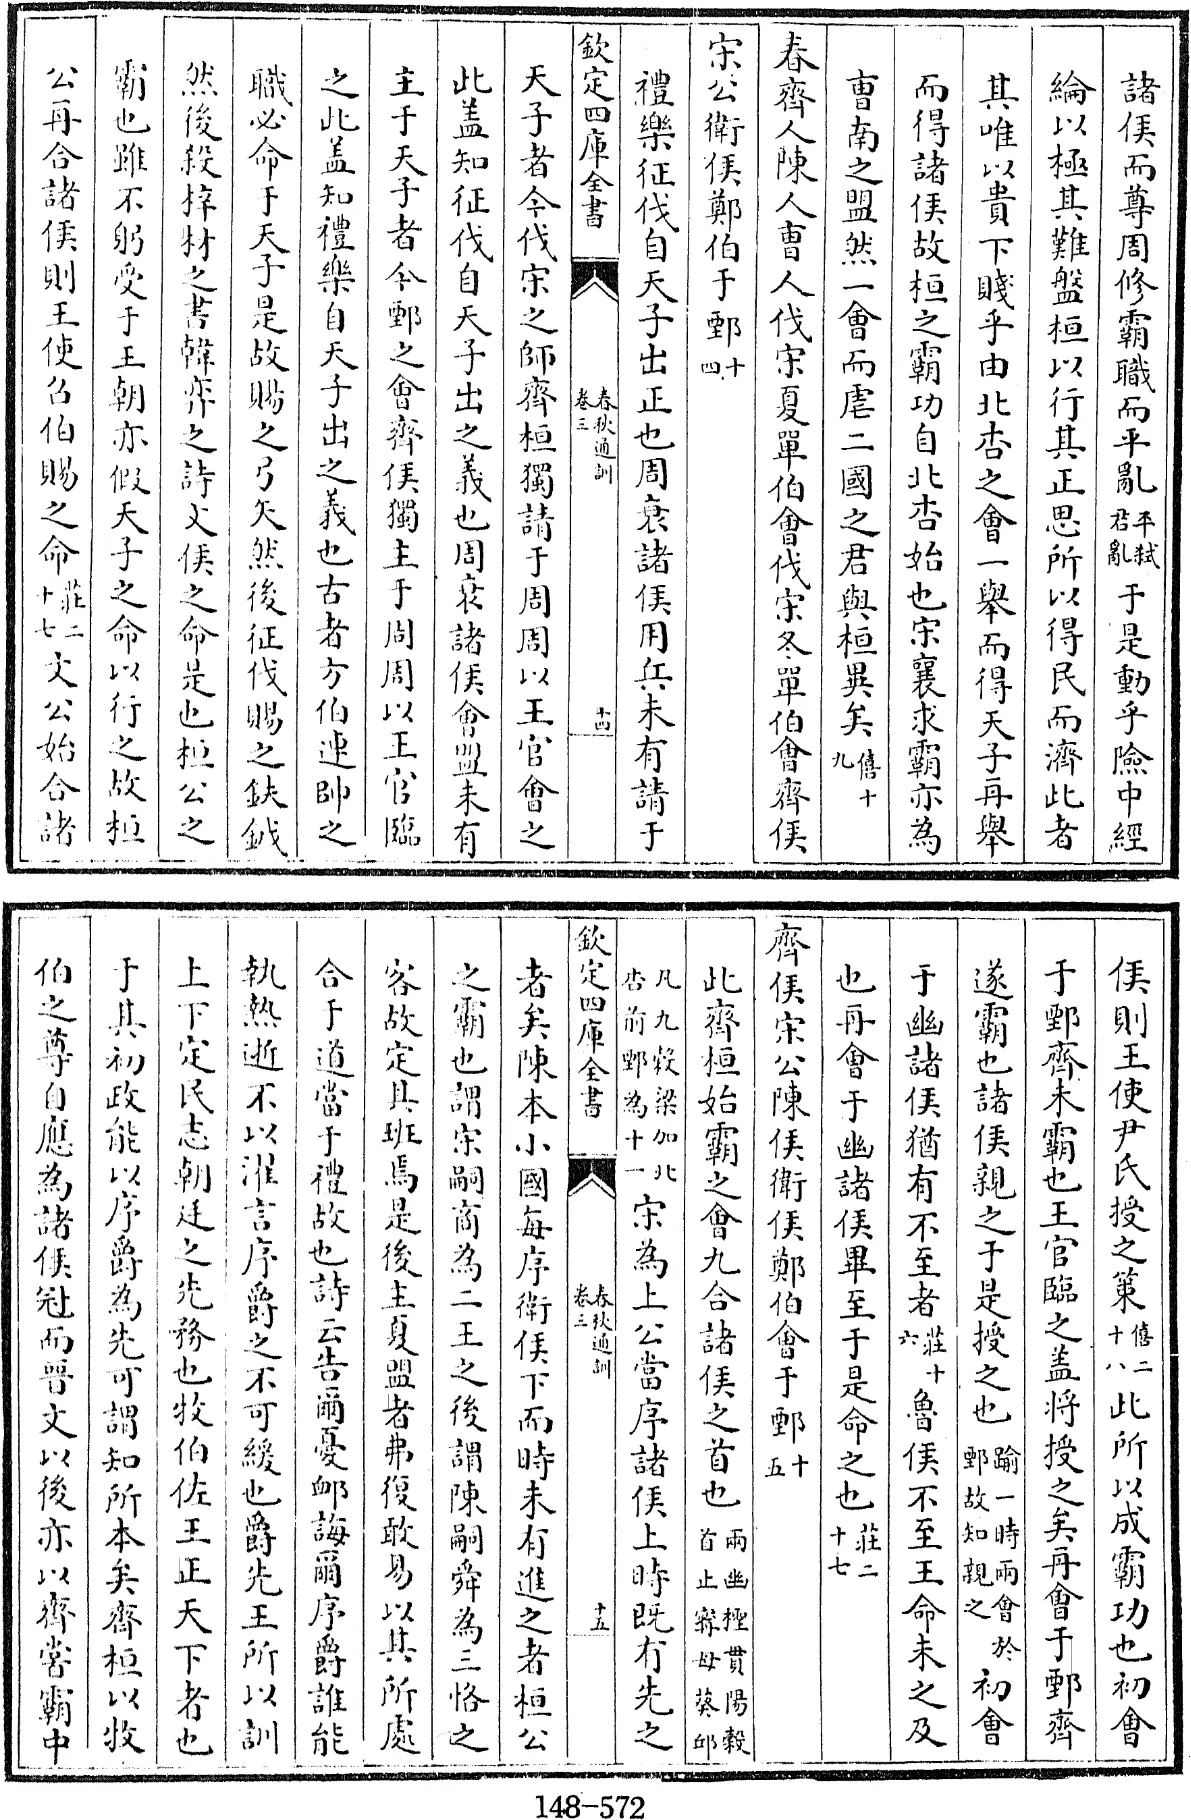 諸侯而尊周修霸職而平亂平弑君亂于是動乎險中經
綸以極其難盤桓以行其正思所以得民而濟此者
其唯以貴下賤乎由北杏之會一舉而得天子再舉
而得諸侯故桓之霸功自北杏始也宋襄求霸亦為
曹南之盟然一會而虐二國之君與桓異矣僖十九
春齊人陳人曹人伐宋夏單伯會伐宋冬單伯會齊侯
宋公衛侯鄭伯于鄄十四
禮樂征伐自天子出正也周衰諸侯用兵未有請于
欽定四庫全書
春秋通訓
卷三
十四
天子者今伐宋之師齊桓獨請于周周以王官會之
此盖知征伐自天子出之義也周衰諸侯會盟未有
主于天子者今鄄之會齊侯獨主于周周以王官臨
之此盖知禮樂自天子出之義也古者方伯連帥之
職必命于天子是故賜之弓矢然後征伐賜之鈇鉞
然後殺梓材之書韓奕之詩文侯之命是也桓公之
霸也雖不躬受于王朝亦假天子之命以行之故桓
公再合諸侯則王使召伯賜之命莊二十七文公始合諸
侯則王使尹氏授之策僖二十八此所以成霸功也初會
于鄄齊未霸也王官臨之盖将授之矣再會于鄄齊
遂霸也諸侯親之于是授之也踰一時兩會於鄄故知親之初會
于幽諸侯猶有不至者莊十六魯侯不至王命未之及
也再會于幽諸侯畢至于是命之也莊二十七
齊侯宋公陳侯衛侯鄭伯會于鄄十五
此齊桓始霸之會九合諸侯之首也兩幽檉貫陽穀首止甯母葵邱
凡九穀梁加北杏前鄄為十一宋為上公當序諸侯上時既有先之
欽定四庫全書
春秋通訓
卷三
十五
者矣陳本小國每序衛侯下而時未有進之者桓公
之霸也謂宋嗣商為二王之後謂陳嗣舜為三恪之
客故定其班焉是後主夏盟者弗復敢易以其所處
合于道當于禮故也詩云告爾憂恤誨爾序爵誰能
執熱逝不以濯言序爵之不可緩也爵先王所以訓
上下定民志朝廷之先務也牧伯佐王正天下者也
于其初政能以序爵為先可謂知所本矣齊桓以牧
伯之尊自應為諸侯冠而晉文以後亦以齊嘗霸中
148-572